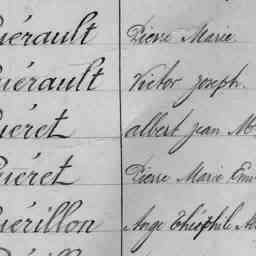 uérault Pierre Marie.
uérault Victor Joseph.
uéret albert jean M
uéret Pierre Marie Em
uérillon Ange Théophile M